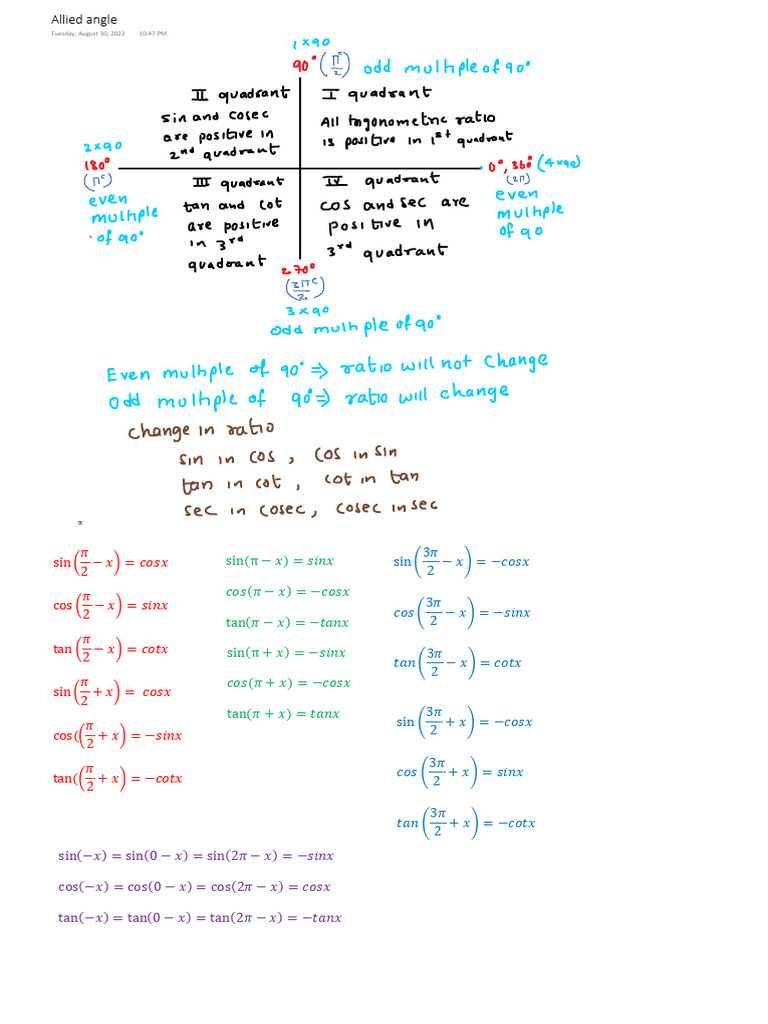 Allied angle
Tuesday, August 30, 2022 10:47 PM
1 × 90
90° (π^c/2) odd multiple of 90°
II quadrant
sin and cosec
are positive in
2nd quadrant
I quadrant
All trigonometric ratio
is positive in 1st quadrant
2 × 90
180°
(π^c)
even
multiple
of 90°
0°, 360° (4×90)
(2π)
even
multiple
of 90
III quadrant
tan and cot
are positive
in 3rd
quadrant
IV quadrant
cos and sec are
positive in
3rd quadrant
270°
(3π^c/2)
3 × 90
odd multiple of 90°
Even multiple of 90° ⇒ ratio will not change
Odd multiple of 90° ⇒ ratio will change
change in ratio
sin in cos , cos in sin
tan in cot , cot in tan
sec in cosec, cosec in sec
π
sin(π/2 − x) = cosx
cos(π/2 − x) = sinx
tan(π/2 − x) = cotx
sin(π/2 + x) = cosx
cos((π/2 + x) = −sinx
tan((π/2 + x) = −cotx
sin(π − x) = sinx
cos(π − x) = −cosx
tan(π − x) = −tanx
sin(π + x) = −sinx
cos(π + x) = −cosx
tan(π + x) = tanx
sin(3π/2 − x) = −cosx
cos(3π/2 − x) = −sinx
tan(3π/2 − x) = cotx
sin(3π/2 + x) = −cosx
cos(3π/2 + x) = sinx
tan(3π/2 + x) = −cotx
sin(−x) = sin(0 − x) = sin(2π − x) = −sinx
cos(−x) = cos(0 − x) = cos(2π − x) = cosx
tan(−x) = tan(0 − x) = tan(2π − x) = −tanx